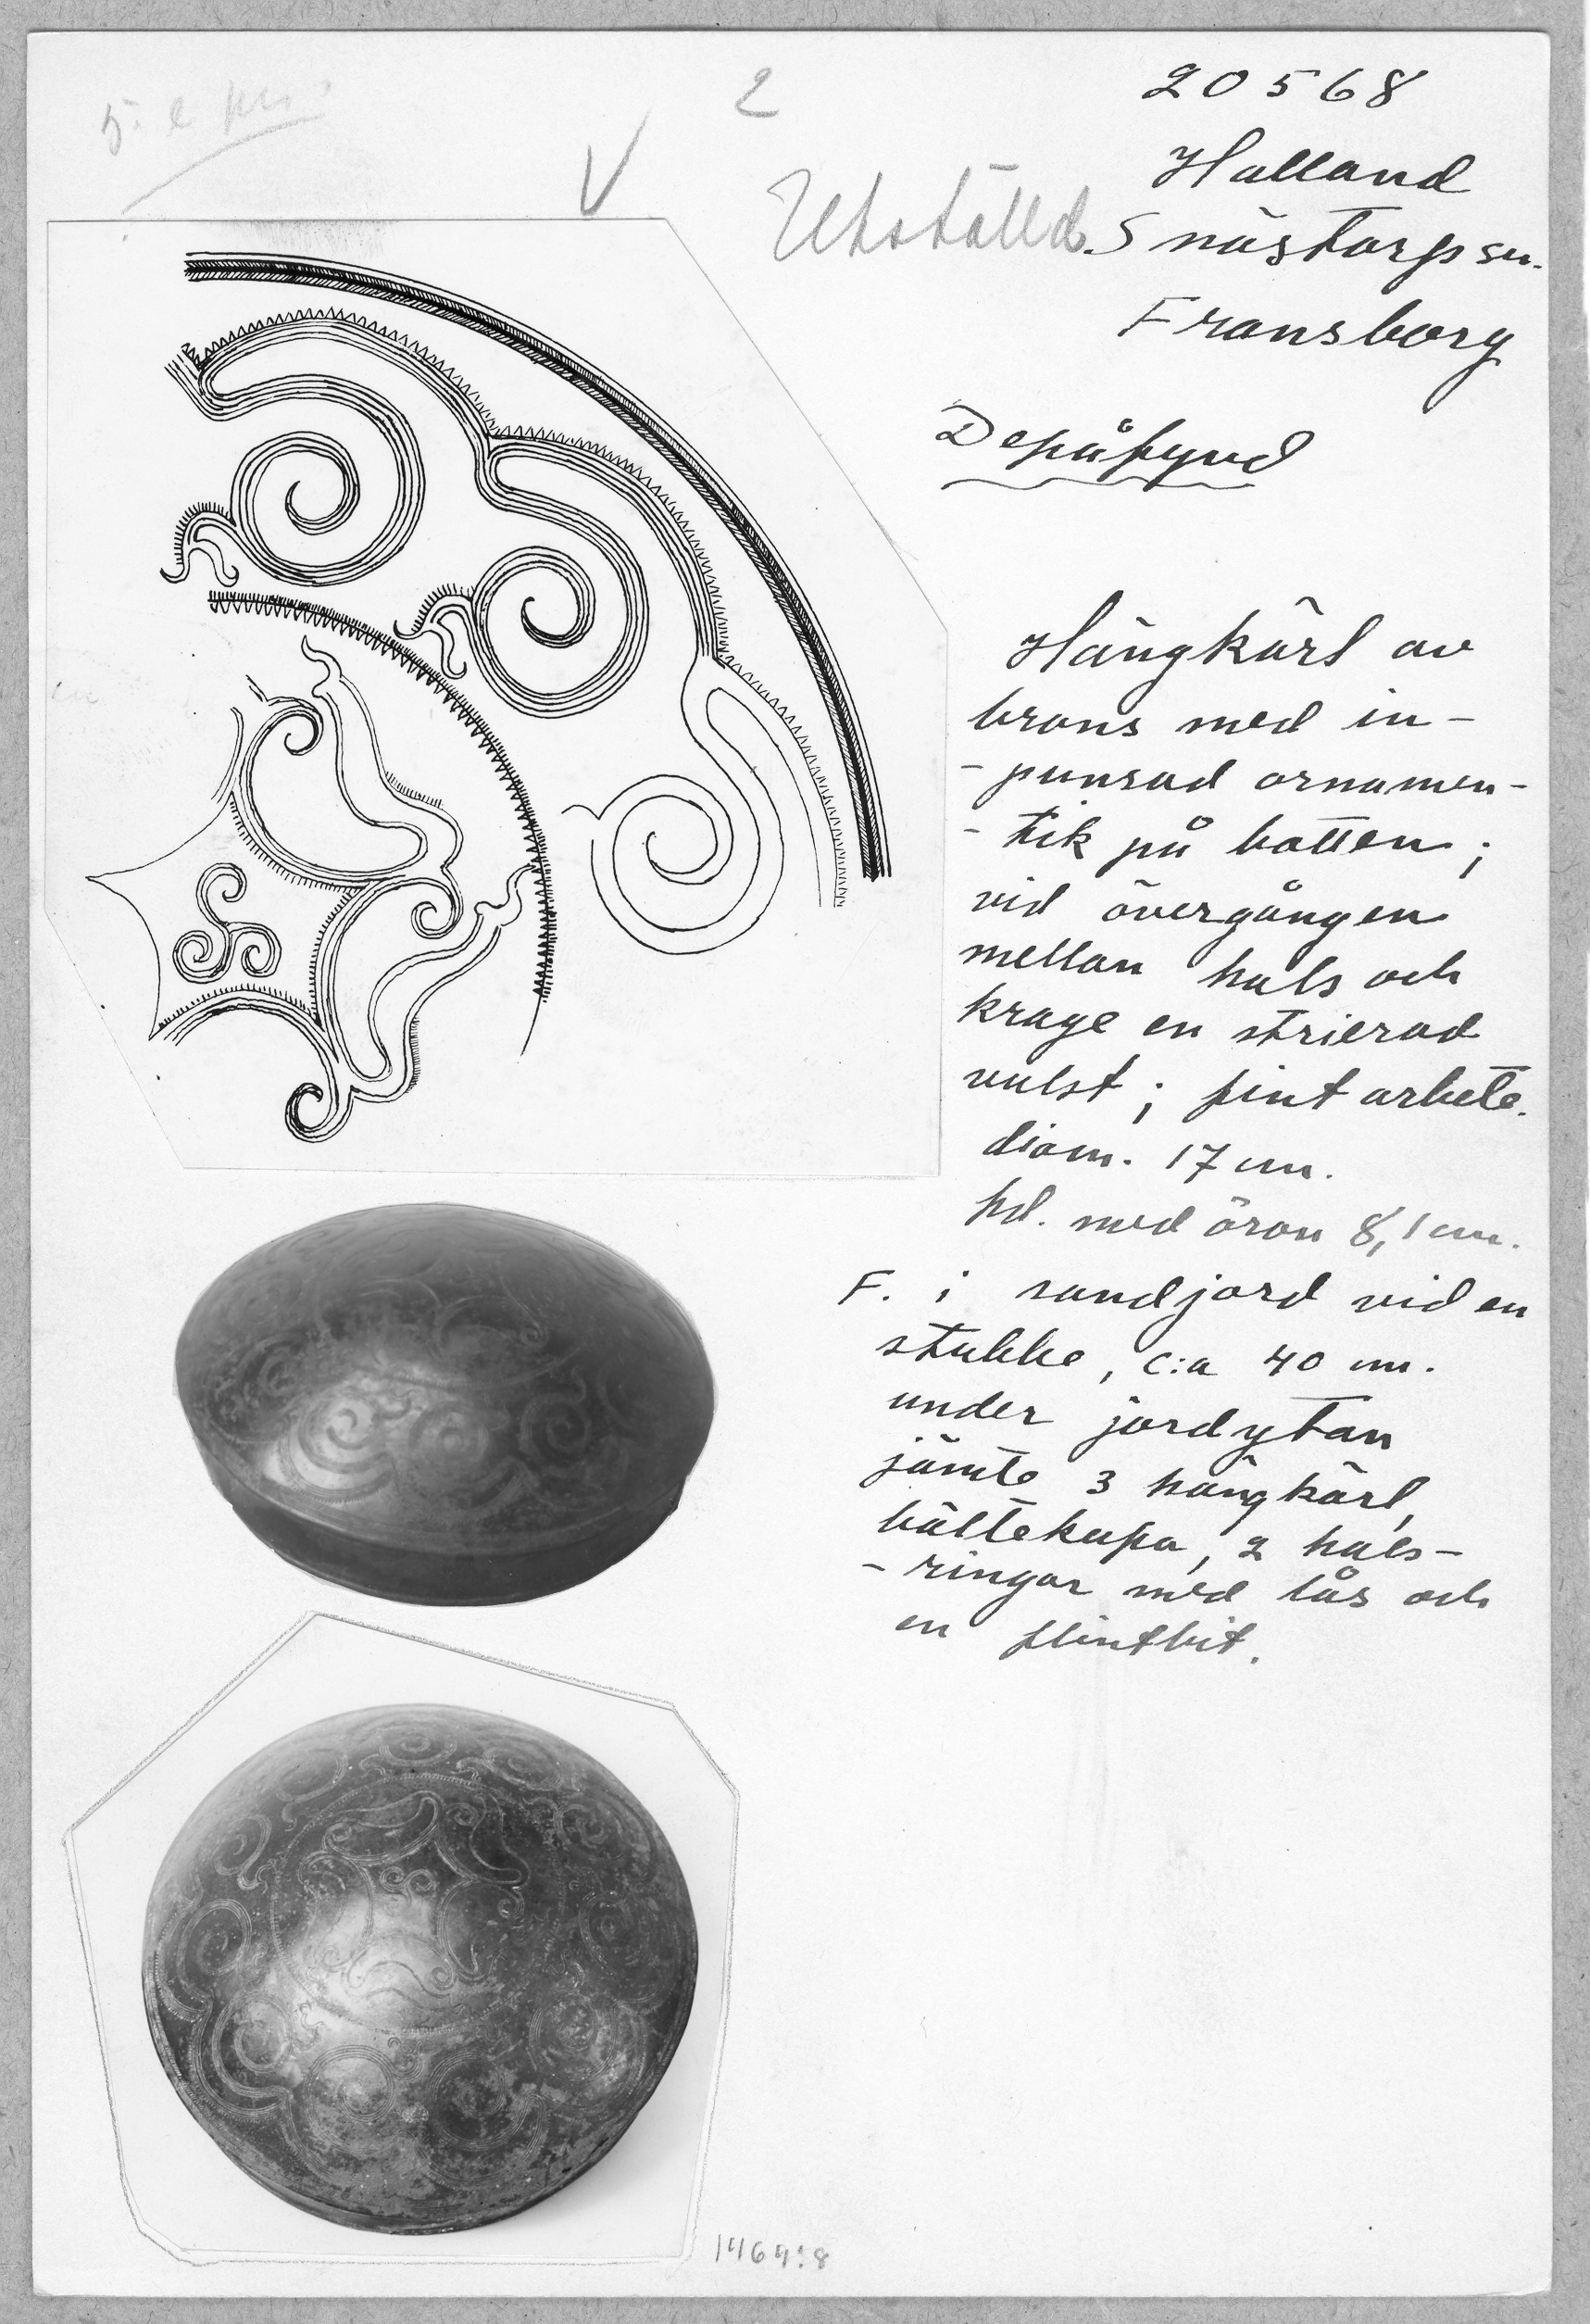 2
20568
Halland
Utställd. Snöstorps sn.
Fransborg
Depåfynd
Hängkärl av
brons med in-
- punsad ornamen-
- tik på botten;
vid övergången
mellan hals och
krage en strierad
vulst; fint arbete.
diam. 17 cm.
hd. med öron 8,1 cm.
F. i sandjord vid en
stubbe, c:a 40 cm.
under jordytan
jämte 3 hängkärl,
bältekupa, 2 hals-
- ringar med lås och
en flintbit.
1464:8